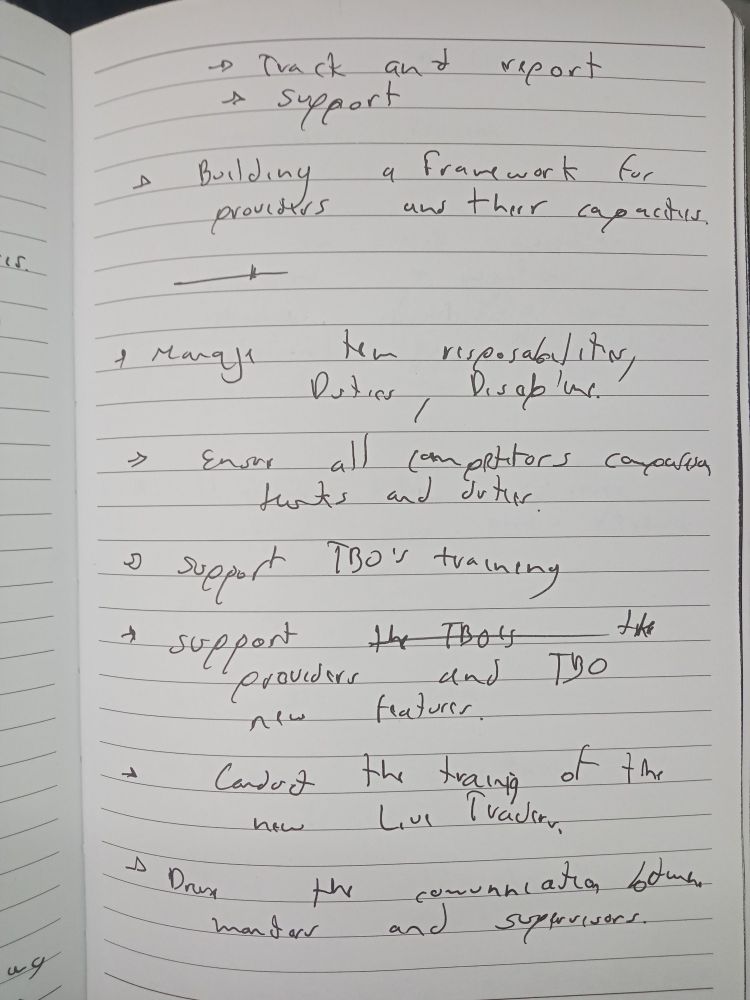 → Track and report
→ support
→ Building a framework for
providers and their capacities.
→ Manage tem resposabilities,
Duties, Disciplins.
→ Ensure all competitors comparison
tasks and duties.
→ support TBO's training
→ support the TBO's the
providers and TBO
new features.
→ Conduct the training of the
new Live Traders.
→ the comunication between
mentors and supervisors.
es.